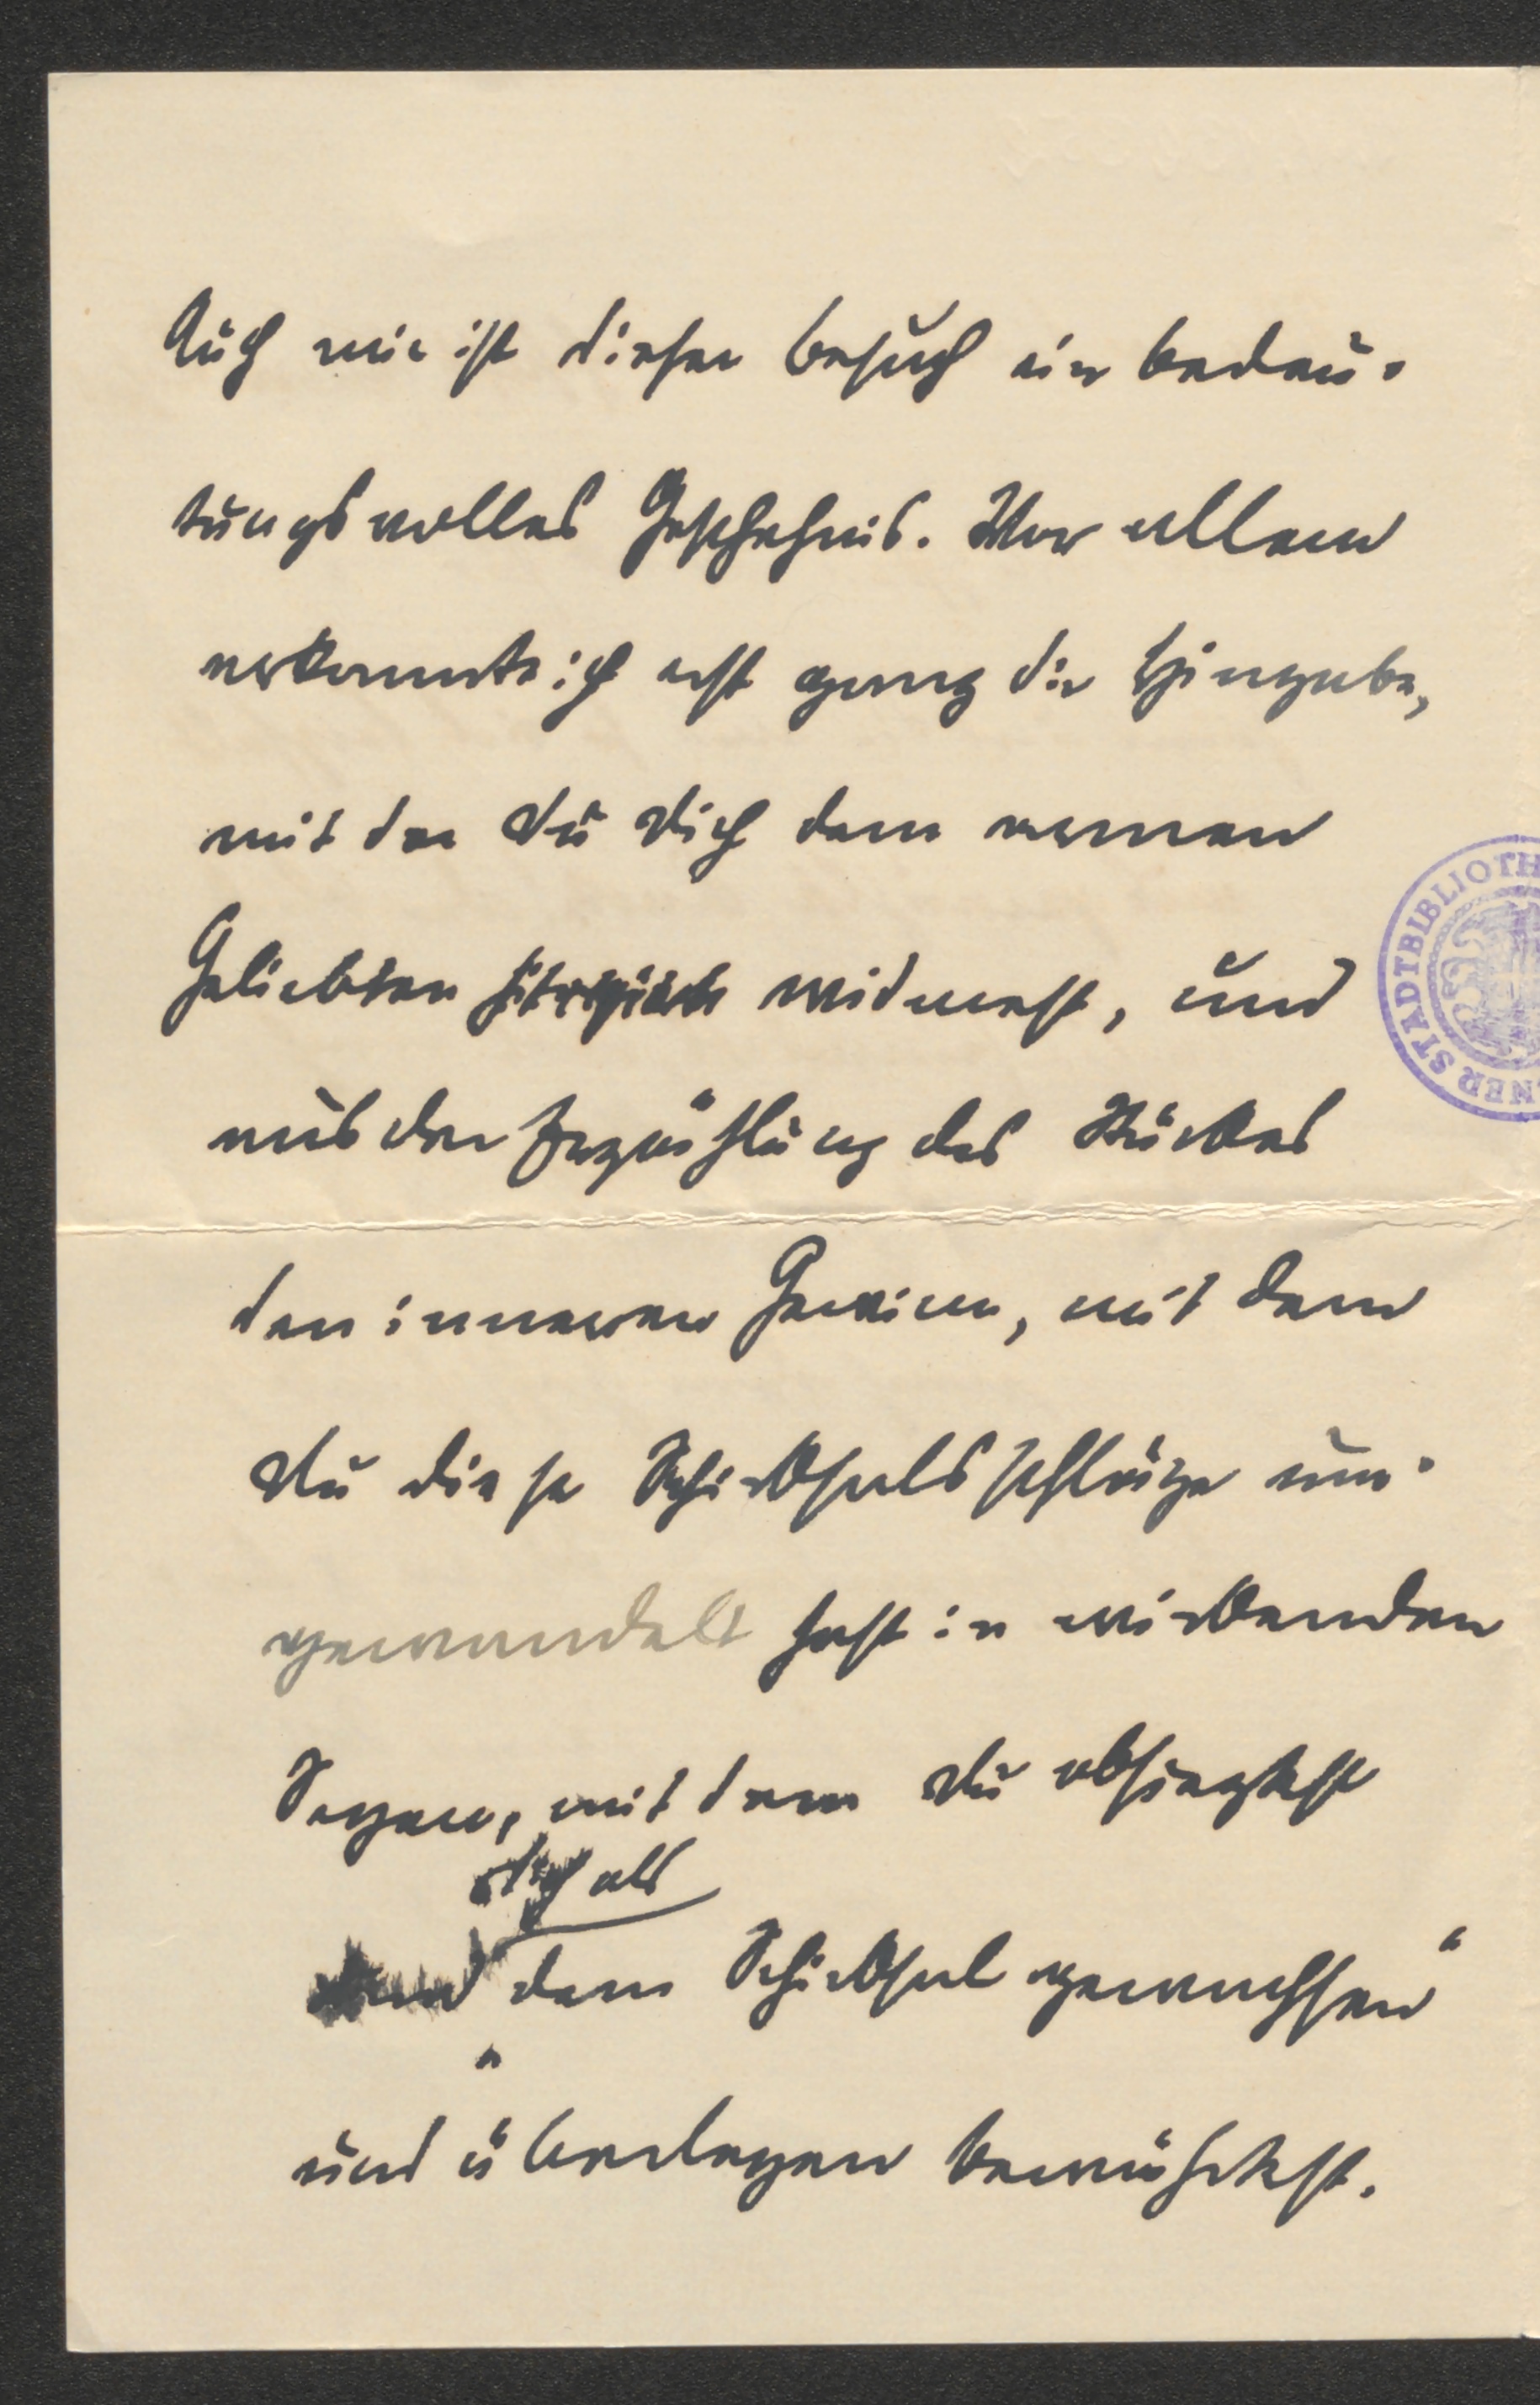 Auch mir ist dieser Besuch ein bedeu-
tungsvolles Geschehnis. Vor allem
erkannte ich erst ganz die Hingabe,
mit der Du Dich dem armen
Geliebten widmest, und
aus der Erzählung des Stückes
den inneren Gewinn, mit dem
Du diese Schicksalsschläge um-
gewandelt hast in wirkenden
Segen, mit dem Du obsiegtest
Dich als
und dem Schicksal gewachsen"
und überlegen bewährtest.
STADTBIBLIOTH
NER